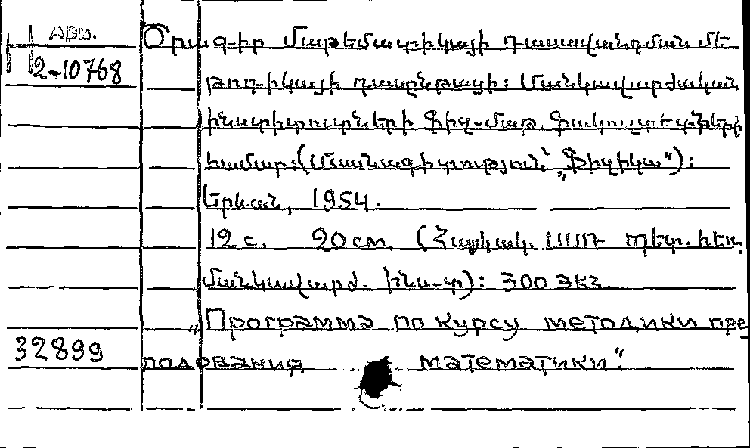 Арм.
2-10768
Ծրագիր մաթեմատիկայի դասավանդման մե
թոդիկայի դասընթացի: Մանկավարժական
ինստիտուտների ֆիզ-մաթ. ֆակուլտետների
համար: (Մասնագիտություն՝ „Ֆիզիկա"):
Երևան, 1954.
12 с. 20 см. (Հայկակ. ՍՍՌ պետ. հեռ.
մանկավարժ. ինս-տ): 300 экз.
„Программа по курсу методики пре
32899
подования математики".